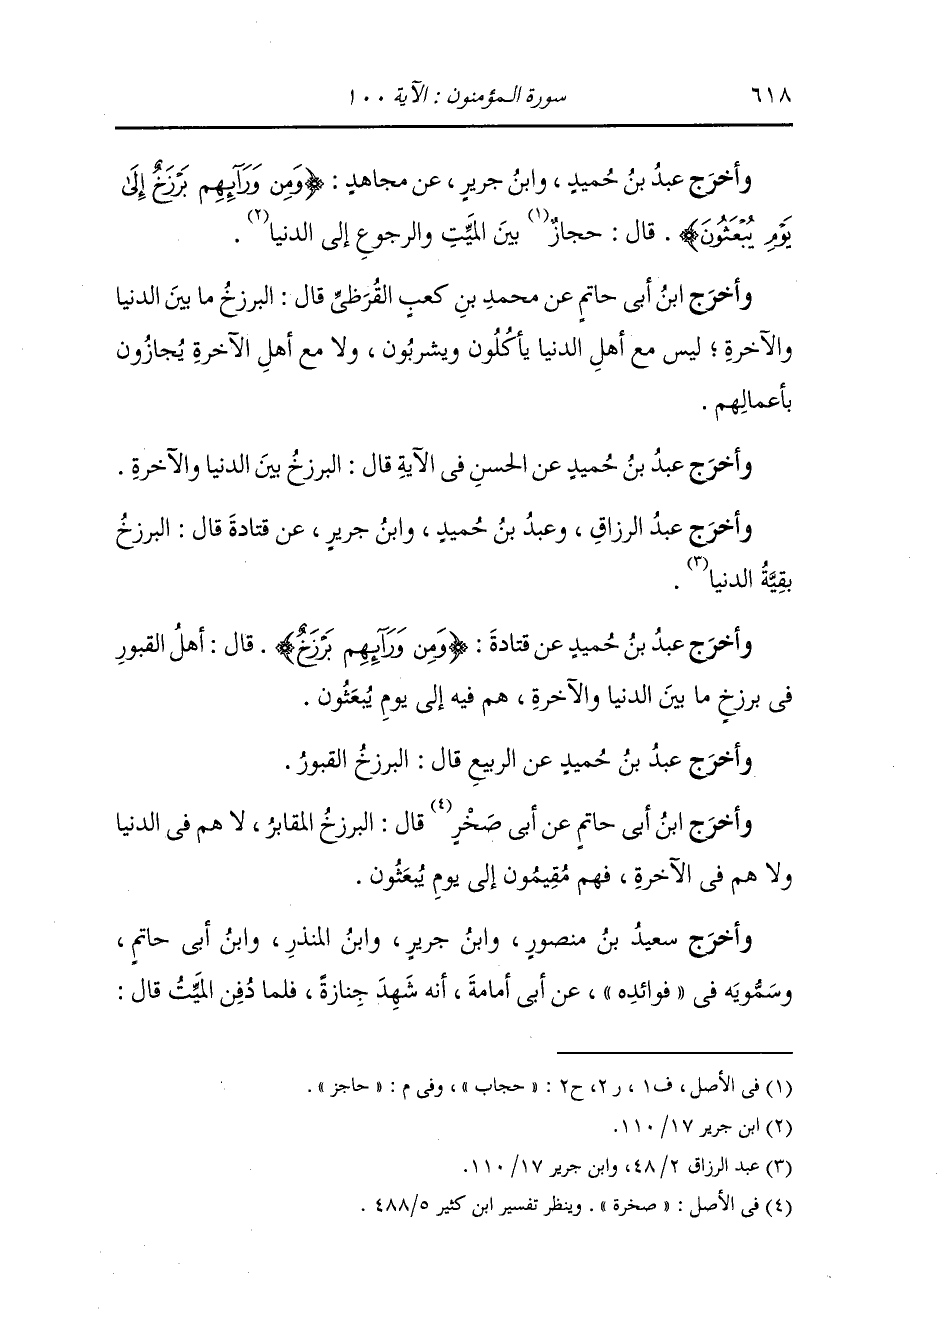 ٦١٨ سورة المؤمنون : الآية ١٠٠
وأخرَج عبدُ بنُ حُميدٍ ، وابنُ جريرٍ ، عن مجاهدٍ : ﴿وَمِن وَرَآئِهِم بَرْزَخٌ إِلَىٰ
يَوْمِ يُبْعَثُونَ﴾ . قال : حجازٌ(١) بينَ المَيِّتِ والرجوعِ إلى الدنيا(٢) .
وأخرَج ابنُ أبى حاتمٍ عن محمدِ بنِ كعبٍ القُرَظيِّ قال : البرزخُ ما بينَ الدنيا
والآخرةِ ؛ ليس مع أهلِ الدنيا يأكُلُون ويشربُون ، ولا مع أهلِ الآخرةِ يُجازُون
بأعمالِهم .
وأخرَج عبدُ بنُ حُميدٍ عن الحسنِ فى الآيةِ قال : البرزخُ بينَ الدنيا والآخرةِ .
وأخرَج عبدُ الرزاقِ ، وعبدُ بنُ حُميدٍ ، وابنُ جريرٍ ، عن قتادةَ قال : البرزخُ
بقِيَّةُ الدنيا(٣) .
وأخرَج عبدُ بنُ حُميدٍ عن قتادةَ : ﴿وَمِن وَرَآئِهِم بَرْزَخٌ﴾ . قال : أهلُ القبورِ
فى برزخٍ ما بينَ الدنيا والآخرةِ ، هم فيه إلى يومِ يُبعَثُون .
وأخرَج عبدُ بنُ حُميدٍ عن الربيعِ قال : البرزخُ القبورُ .
وأخرَج ابنُ أبى حاتمٍ عن أبى صَخْرٍ(٤) قال : البرزخُ المقابرُ ، لا هم فى الدنيا
ولا هم فى الآخرةِ ، فهم مُقِيمُون إلى يومِ يُبعَثُون .
وأخرَج سعيدُ بنُ منصورٍ ، وابنُ جريرٍ ، وابنُ المنذرِ ، وابنُ أبى حاتمٍ ،
وسَمُّويَه فى « فوائدِه » ، عن أبى أمامةَ ، أنه شَهِدَ جِنازةً ، فلما دُفِن المَيِّتُ قال :
(١) فى الأصل ، ف١ ، ر٢، ح٢ : « حجاب » ، وفى م : « حاجز » .
(٢) ابن جرير ١٧/ ١١٠.
(٣) عبد الرزاق ٢/ ٤٨، وابن جرير ١٧/ ١١٠.
(٤) فى الأصل : « صخرة » . وينظر تفسير ابن كثير ٥/ ٤٨٨ .